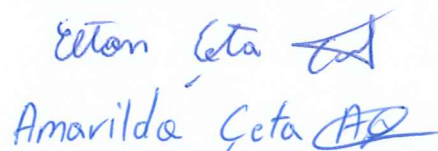 Elton Çeta
Amarilda Çeta